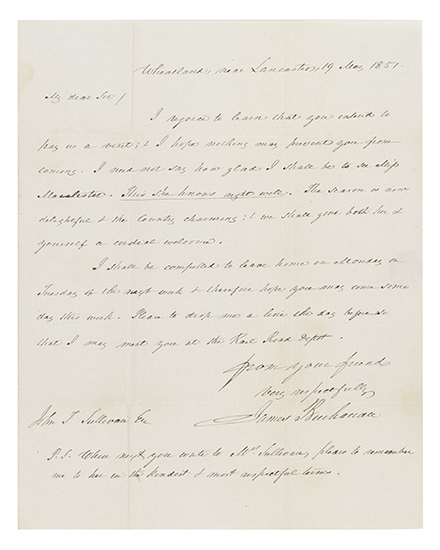 Wheatland, near Lancaster, 19 May 1851.
My dear Sir/
I rejoice to learn that you intend to
pay us a visit; & I hope nothing may prevent you from
coming. I need not say how glad I shall be to see Miss
Macalester. This she knows right well. The season is now
delightful & the Country charming; & we shall give both her &
yourself a cordial welcome.
I shall be compelled to leave home on Monday or
Tuesday of the next week & therefore hope you may come some
day this week. Please to drop me a line the day before so
that I may meet you at the Rail Road Depot.
from your friend
very respectfully
James Buchanan
John T Sullivan Esq
P.S. When next you write to Mrs Sullivan, please to remember
me to her in the kindest & most respectful terms.